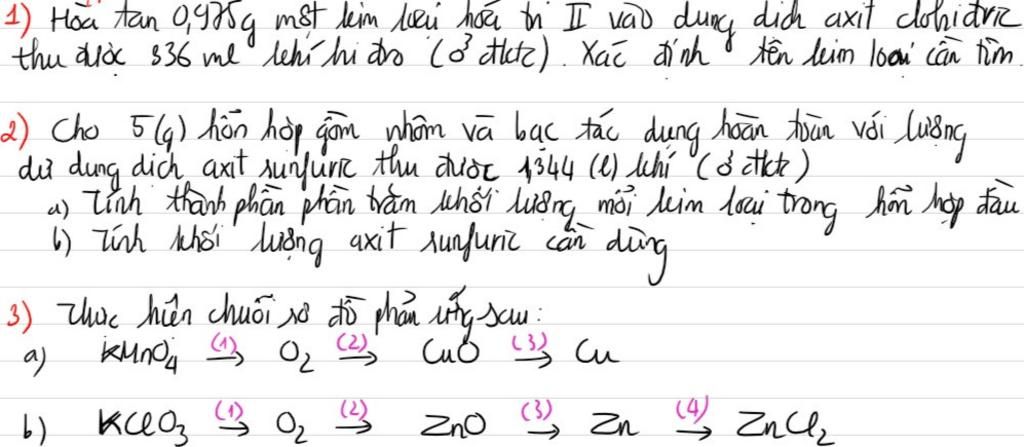 1) Hòa tan 0,975g một kim loại hoá trị II vào dung dịch axit clohidric
thu được 336 ml khí hidro (ở đktc). Xác định tên kim loại cần tìm.
2) Cho 5(g) hỗn hợp gồm nhôm và bạc tác dụng hoàn toàn với lượng
dư dung dịch axit sunfuric thu được 1,344 (l) khí (ở đktc)
a) Tính thành phần phần trăm khối lượng mỗi kim loại trong hỗn hợp đầu
b) Tính khối lượng axit sunfuric cần dùng
3) Thực hiện chuỗi sơ đồ phản ứng sau:
a) KMnO₄ (1)→ O₂ (2)→ CuO (3)→ Cu
b) KClO₃ (1)→ O₂ (2)→ ZnO (3)→ Zn (4)→ ZnCl₂